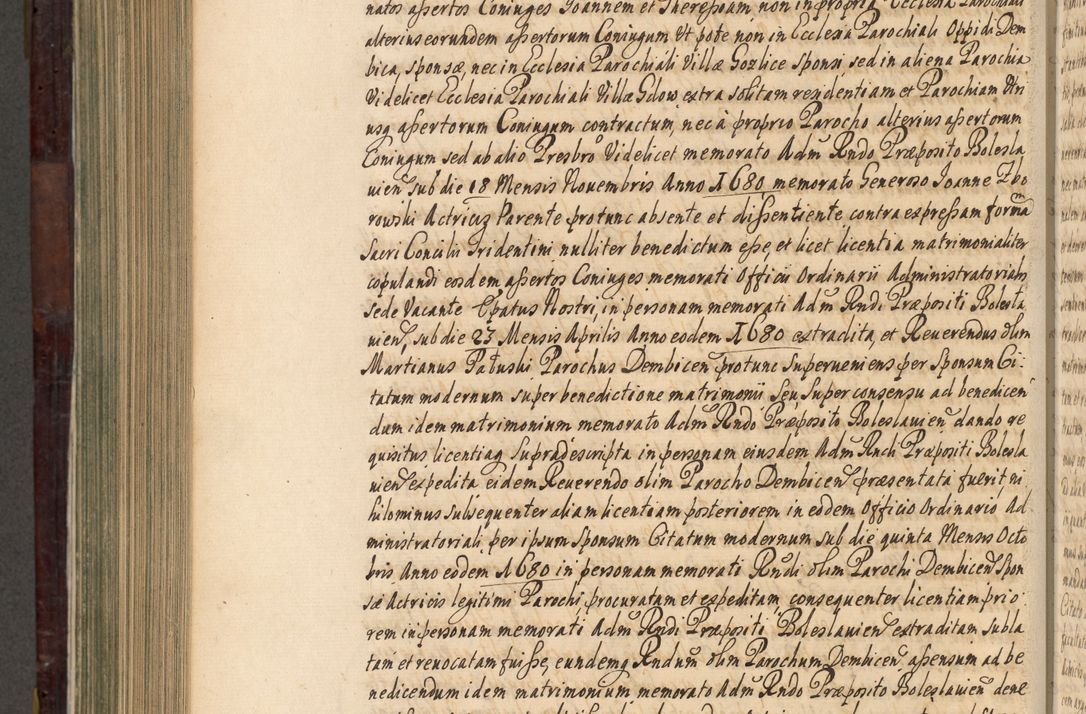 natos assertos Coniuges Joannem et Theressam non in propria Ecclesia Parochiali
alterius eorundem assertorum Coniugum Ut pote non in Ecclesia Parochiali Oppidi Dem
bica, sponsæ, nec in Ecclesia Parochiali Villæ Gozlice sponsi, sed in aliena Parochia
Videlicet Ecclesia Parochiali Villæ Gdow extra solitam residentiam et Parochiam Utri
usq assertorum Coniugum contractum, nec à proprio Parocho alterius assertorum
Coniugum sed ab alio Presbro Videlicet memorato Adm Rndo Præposito Bolesla
uien sub die 18 Mensis Nouembris Anno 1680 memorato Generoso Joanne Zbo
rowski Actricis Parente protunc absente et dissentiente contra expressam formã
Sacri Concilii Tridentini nulliter benedictum esse, et licet licentia matrimonialiter
copulandi eosdem assertos Coniuges memorati Officii Ordinarii Administratorialis
Sede Vacante Epatus Nostri, in personam memorati Adm Rndi Præpositi Bolesla
uien, sub die 23 Mensis Aprilis Anno eodem 1680 extradita, et Reuerendus olim
Martianus Patuski Parochus Dembicen protunc superueniens per Sponsum Ci-
tatum modernum super benedictione matrimonii seu super consensu ad benedicen
dum idem matrimonium memorato Adm Rndo Præposito Boleslauien dando re
quisitus licentiaq supradescripta in personam eiusdem Adm Rndi Præpositi Bolesla
uien expedita eidem Reuerendo olim Parocho Dembicen præsentata fuerit, ni
hilominus subsequenter aliam licentiam posteriorem in eodem Officio Ordinario, Ad
ministratoriali per ipsum Sponsum Citatum modernum sub die quinta Mensis Octo
bris Anno eodem 1680 in personam memorati Rndi olim Parochi Dembicen Spon
sæ Actricis legitimi Parochi, procuratam et expeditam, consequenter licentiam prio
rem in personam memorati Adm Rndi Præpositi Boleslauien extraditam subla
tam et reuocatam fuisse, eundemq Rndum olim Parochum Dembicen assensum ad be
nedicendum idem matrimonium memorato Adm Rndo Præposito Boleslauien dene